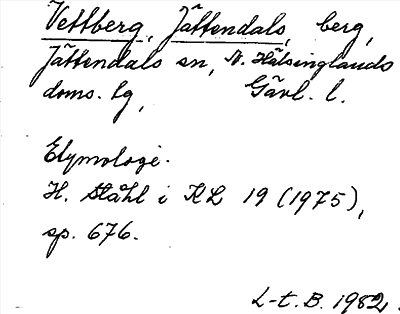 Vettberg, Jättendals, berg,
Jättendals sn, N. Hälsinglands
doms. tg, Gävl. l.
Etymologi.
H. Ståhl i KL 19 (1975),
sp. 676.
L-t. B. 1982.